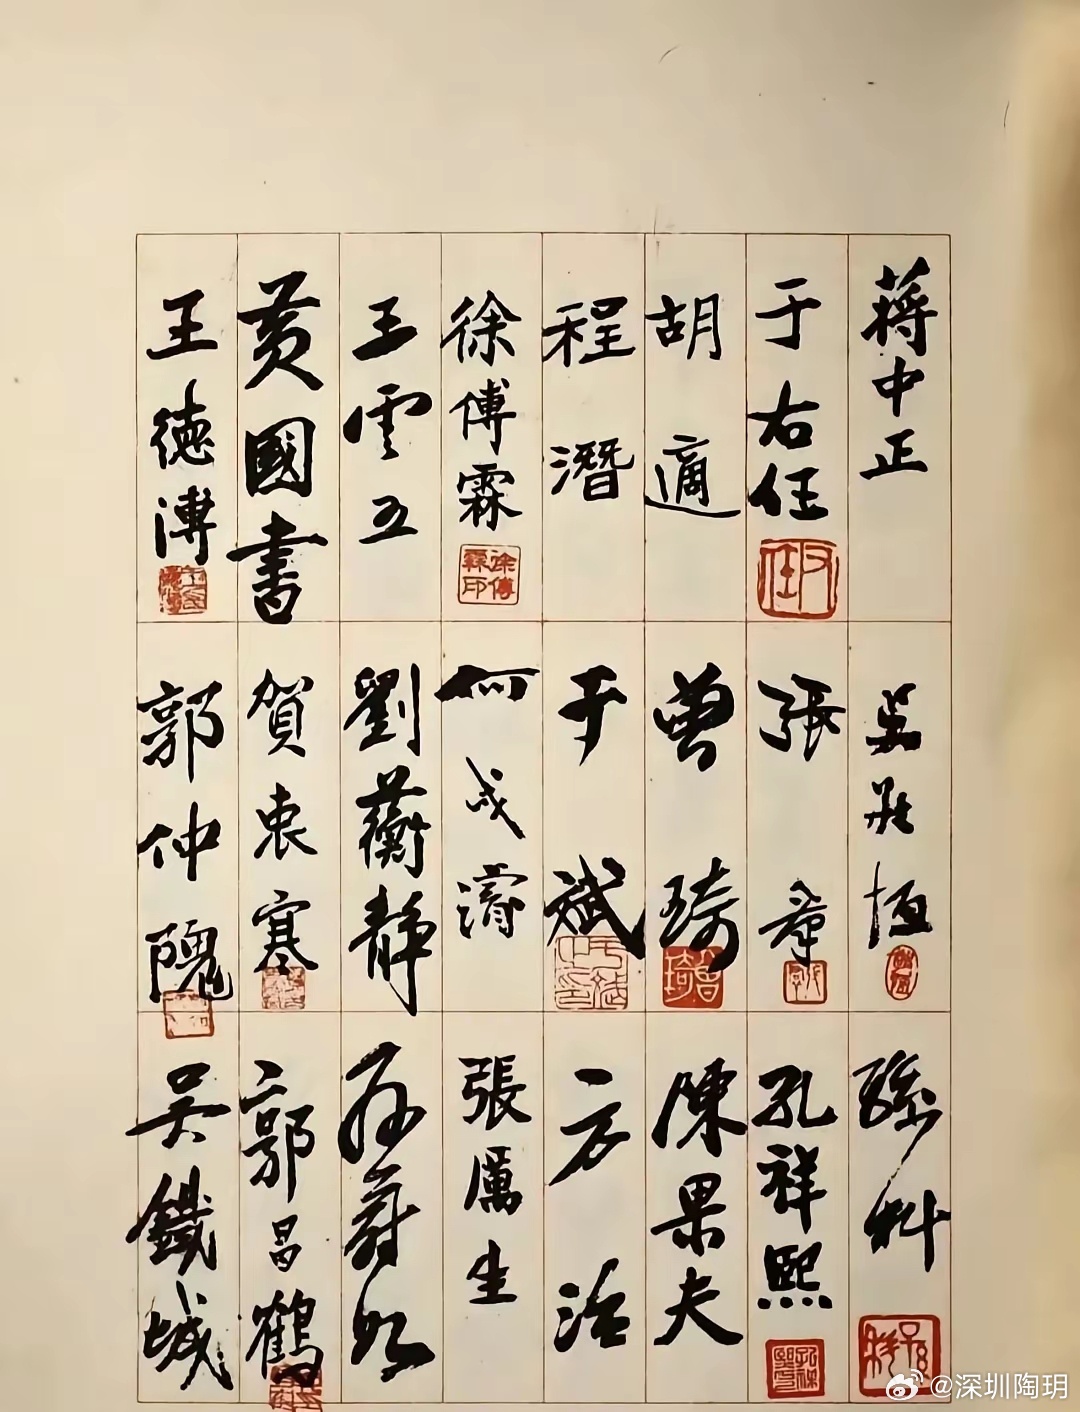 蔣中正
于右任
右任
胡適
程潛
徐傅霖
徐傅霖印
王雲五
黃國書
王德溥
吳敬恆
張羣
曾琦
曾琦
于斌
何成濬
劉蘅靜
賀衷寒
郭仲隗
孫科
孫科
孔祥熙
陳果夫
方治
張厲生
孫蔚如
郭昌鶴
吳鐵城
@深圳陶玥